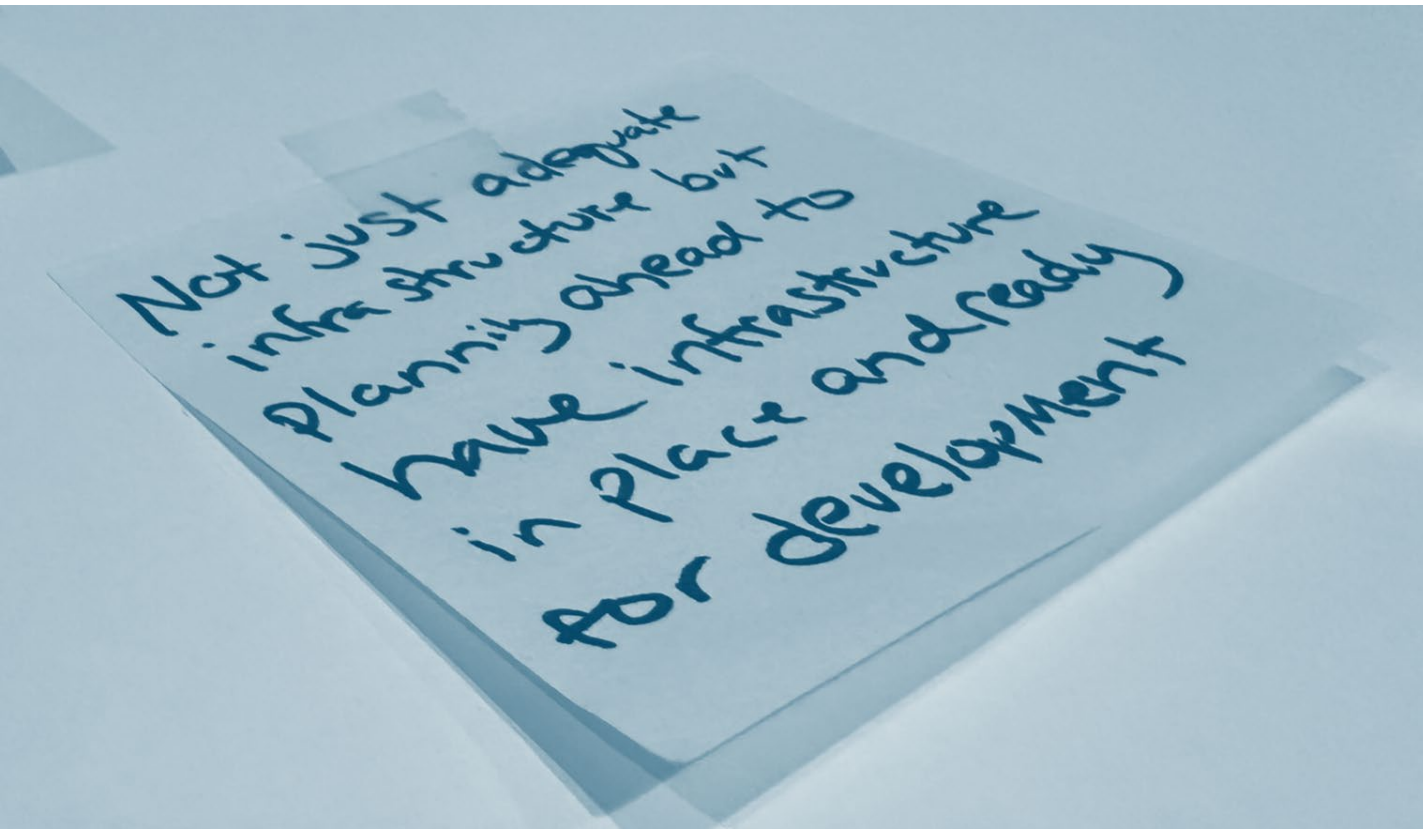 Not just adequate
infrastructure but
planning ahead to
have infrastructure
in place and ready
for development